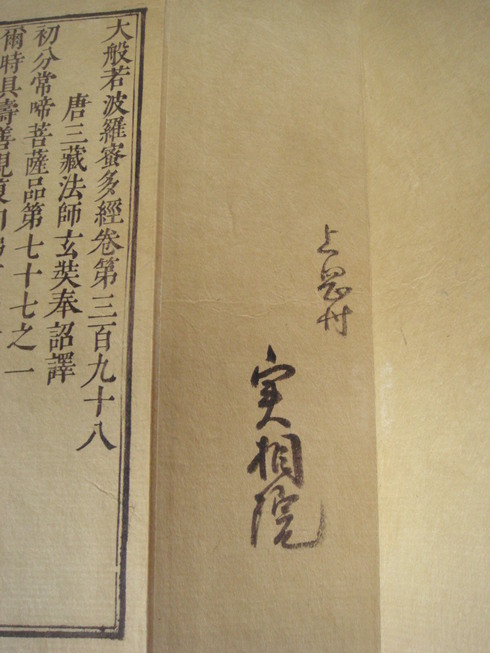 上 村
実相院
大般若波羅蜜多經卷第三百九十八
唐三藏法師玄奘奉　詔譯
初分常啼菩薩品第七十七之一
爾時具壽善現復白